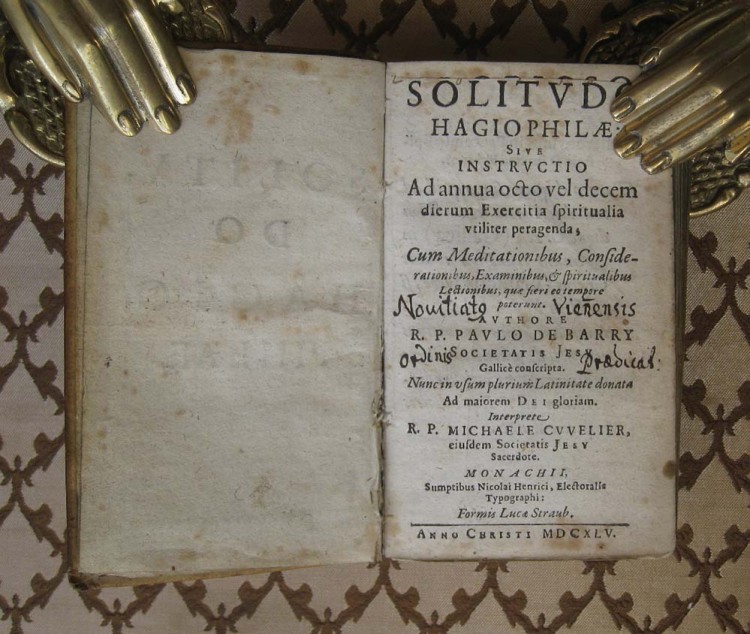 SOLITVDO
HAGIOPHILÆ:
SIVE
INSTRVCTIO
Ad annua octo vel decem
dierum Exercitia ſpiritualia
vtiliter peragenda,
Cum Meditationibus, Conſide-
rationibus, Examinibus, & ſpiritualibus
Lectionibus, quæ fieri eo tempore
poterunt.
Nouitiatq Vieñensis
AVTHORE
R. P. PAVLO DE BARRY
ordinis SOCIETATIS JESV Prædicat:
Gallicè conſcripta.
Nunc in vſum plurium Latinitate donata
Ad maiorem DEI gloriam.
Interprete
R. P. MICHAELE CVVELIER,
eiuſdem Societatis JESV
Sacerdote.
MONACHII,
Sumptibus Nicolai Henrici, Electoralis
Typographi:
Formis Lucæ Straub.
ANNO CHRISTI MDCXLV.